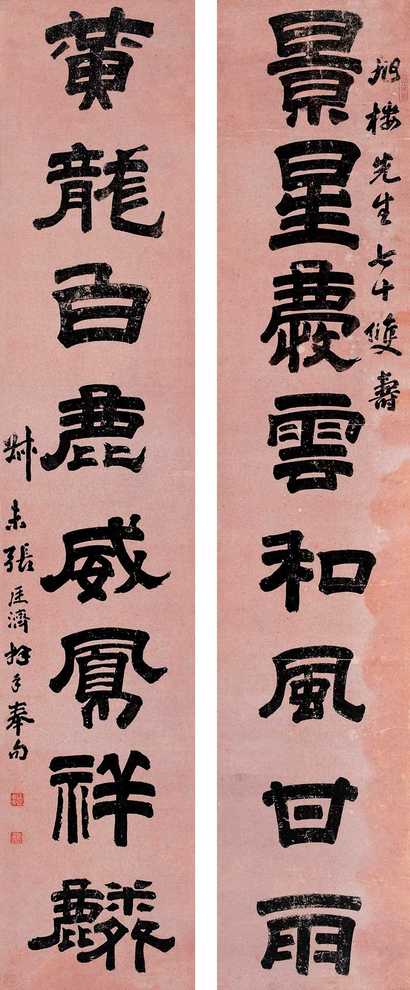 旭樓先生七十雙壽
景星慶雲和風甘雨
黃龍白鹿威鳳祥麟
叔未張廷濟拜手奉句